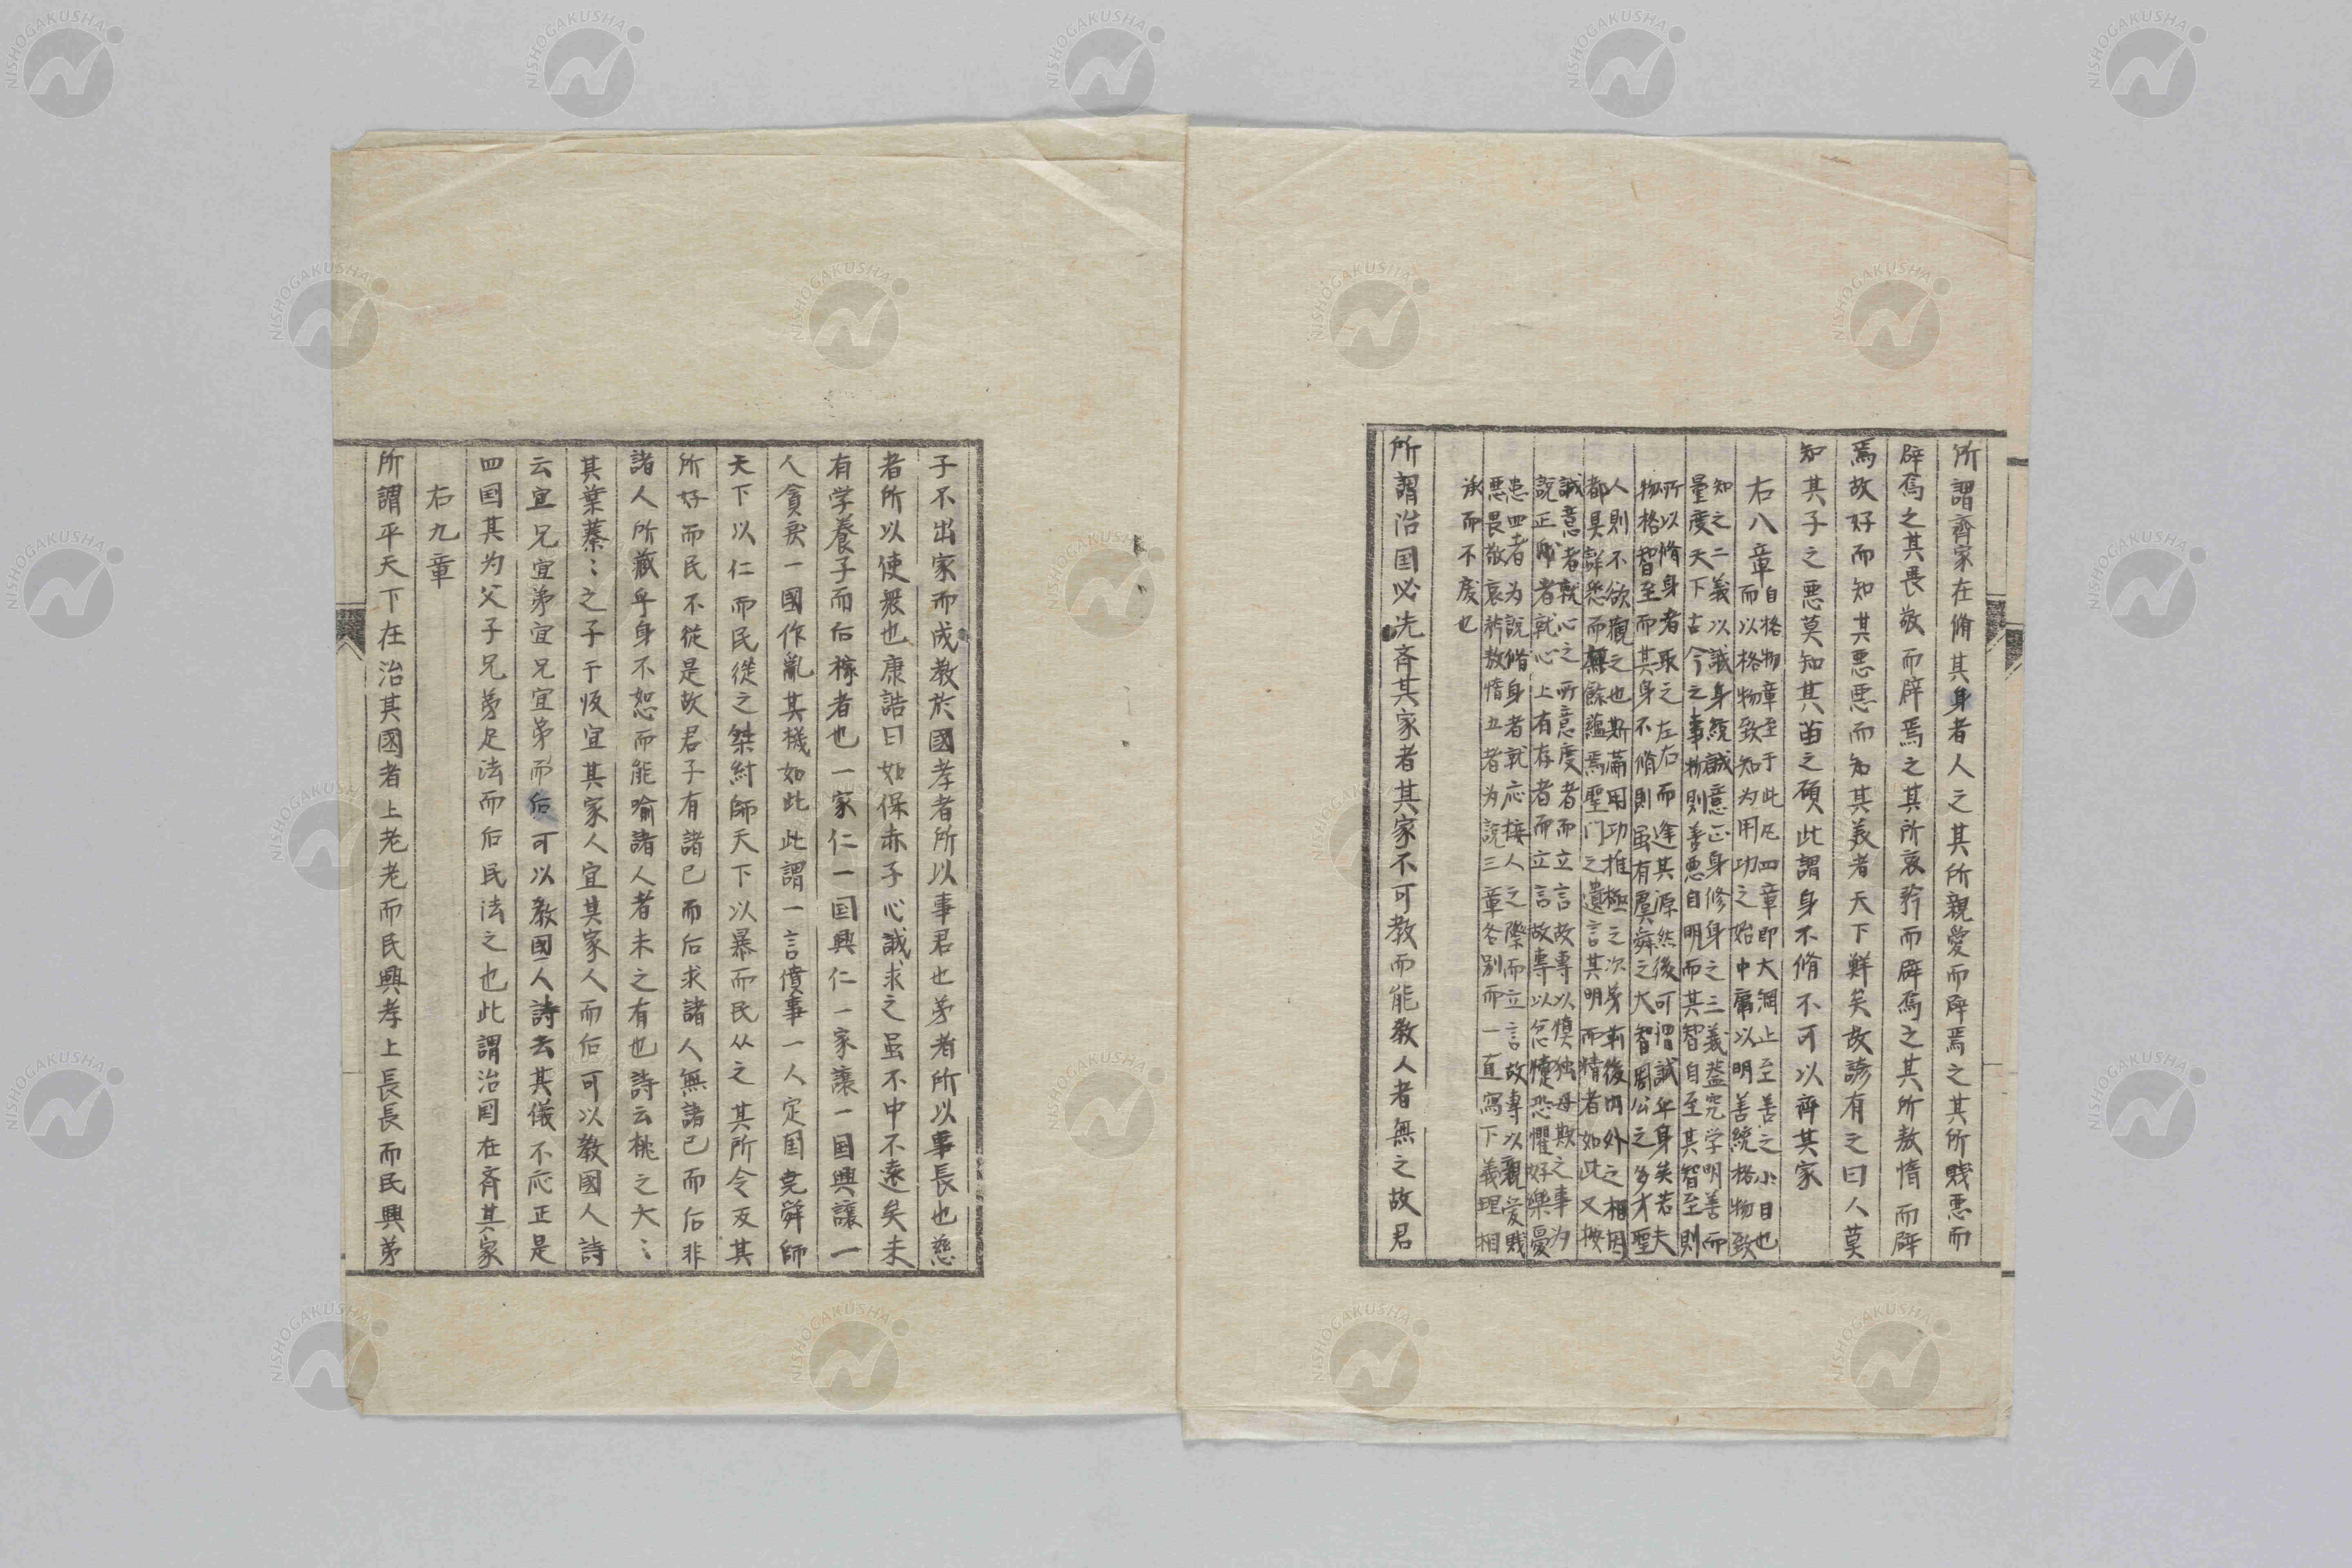 所謂齊家在脩其身者人之其所親愛而辟焉之其所賤悪而
辟焉之其畏敬而辟焉之其所哀矜而辟焉之其所敖惰而辟
焉故好而知其悪悪而知其義者天下鮮矣故諺有之曰人莫
知其子之悪莫知其苗之碩此謂身不脩不可以齊其家
右八章
自格物章至于此凡四章即大綱止至善之小目也
而以格物致知为用功之始中庸以明善統格物致
知之二義以誠身統誠意正身修身之三義蓋究学明善而
量度天下古今之事物則善悪自明而其智自至其智至則
所以脩身者取之左右而逢其源然後可谓誠乎身矣若夫
物格智至而其身不脩則虽有虞舜之大智周公之多才聖
人則不欲觀之也斯用功推極之次第前後内外之相因
都具詳悉而無餘蘊焉聖门之遺言其明而精者如此又按
誠意者就心之所意度者而立言故專以慎独毋欺之事为
說正者就心上有存者而立言故專以忿懥恐懼好樂憂
患四者为說脩身者就応接人之際而立言故專以親愛賤
悪畏敬哀矜敖惰五者为說三章各別而一直寫下義理相
承而不废也
所謂治国必先斉其家者其家不可教而能教人者無之故君
子不出家而成教於國孝者所以事君也弟者所以事長也慈
者所以使衆也康誥曰如保赤子心誠求之虽不中不遠矣未
有学養子而后稼者也一家仁一国興仁一家讓一国興讓一
人貪戾一國作亂其機如此此謂一言僨事一人定国尭舜師
天下以仁而民從之桀紂師天下以暴而民从之其所令反其
所好而民不從是故君子有諸己而后求諸人無諸己而后非
諸人所藏乎身不恕而能喻諸人者未之有也詩云桃之夭〻
其葉蓁〻之子于皈宜其家人宜其家人而后可以教國人詩
云宜兄宜弟宜兄宜弟而后可以教國人詩云其儀不忒正是
四国其为父子兄弟足法而后民法之也此謂治国在斉其家
右九章
所謂平天下在治其國者上老老而民興孝上長長而民興弟